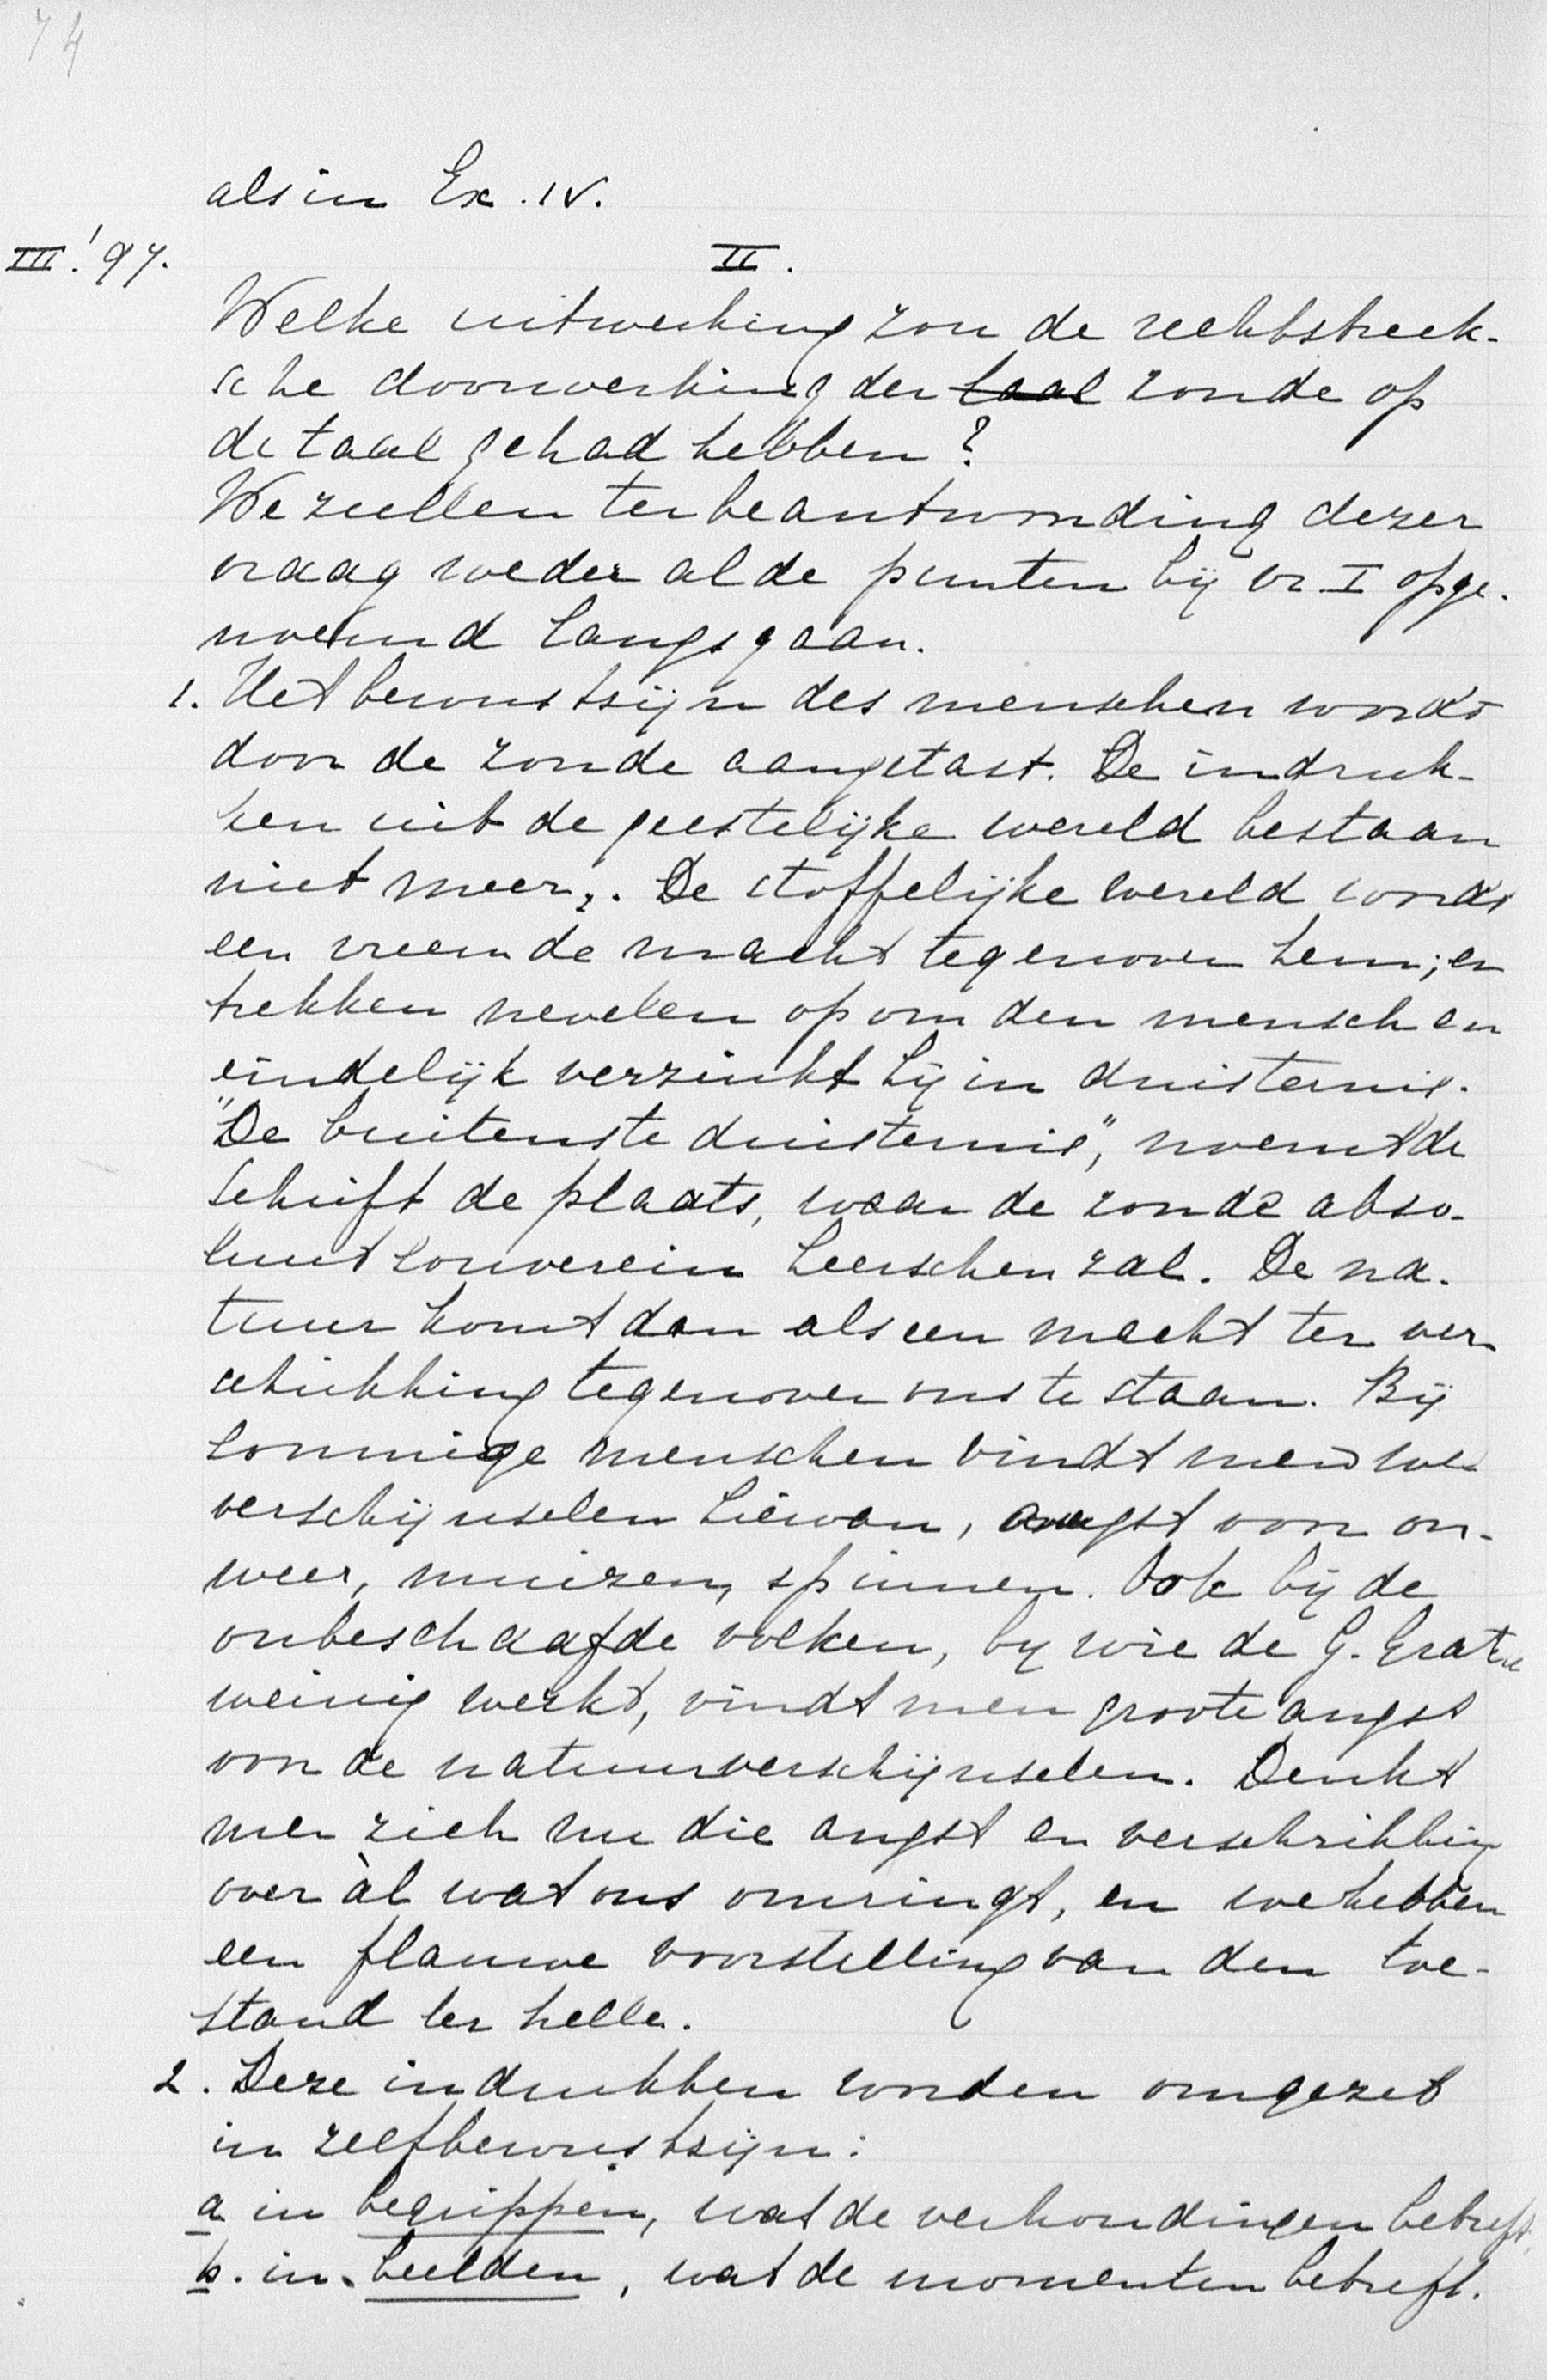 74
als in Ex. IV.
III.' 97.
II.
Welke uitwerking zou de rechtstreek-
sche doorwerking der taal zonde op
de taal gehad hebben?
We zullen ter beantwoording dezer
vraag weder al de punten bij vr. I opge-
noemd langs gaan.
1. Het bewustzijn des menschen wordt
door de zonde aangetast. De indruk-
ken uit de geestelijke wereld bestaan
niet meer. De stoffelijke wereld wordt
een vreemde macht tegenover hem; er
trekken nevelen op om den mensch en
eindelijk verzinkt hij in duisternis.
"De buitenste duisternis", noemt de
Schrift de plaats, waar de zonde abso-
luut souverein heerschen zal. De na-
tuur komt dan als een macht ter ver-
schrikking tegenover ons te staan. Bij
sommige menschen vindt men
verschijnselen hiervan, angst voor on-
weer, muizen, spinnen. Ook bij de
onbeschaafde volken, bij wie de G. Gratie
weinig werkt, vindt men groote angst
voor de natuurverschijnselen. Denkt
men zich nu die angst en verschrikking
over àl wat ons omringt, en we hebben
een flauwe voorstelling van den toe-
stand ter helle.
2. Deze indrukken worden omgezet
in zelfbewustzijn:
a in begrippen, wat de verhoudingen betreft,
b. in beelden, wat de momenten betreft.